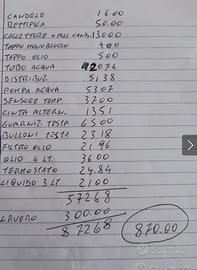 CANDELE 16.00
RETTIFICA 50.00
COLLETTORE + 130.00
TAPPO MONOBLOCCO 9.00
TAPPO OLIO 5.00
TUBO ACQUA 20.74
DISTRIBUZ. 51.38
POMPA ACQUA 53.07
SENSORE TEMP. 37.00
CINTA ALTERN. 13.51
GUARNIZ. TESTA 65.00
BULLONI TESTA 23.18
FILTRO OLIO 21.96
OLIO 4 LT. 36.00
TERMOSTATO 24.84
LIQUIDO 3 LT 21.00
572.68
LAVORO 300.00
872.68
870.00